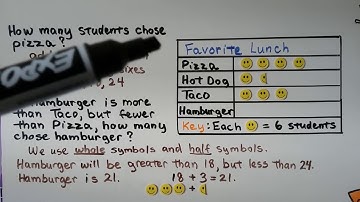 How many students chose
pizza?
EXPO
24
Hamburger is more
than Taco, but fewer
than Pizza, how many
chose hamburger?
Favorite Lunch
Pizza
Hot Dog
Taco
Hamburger
Key: Each = 6 students
We use whole symbols and half symbols.
Hamburger will be greater than 18, but less than 24.
Hamburger is 21. 18 + 3 = 21.
+